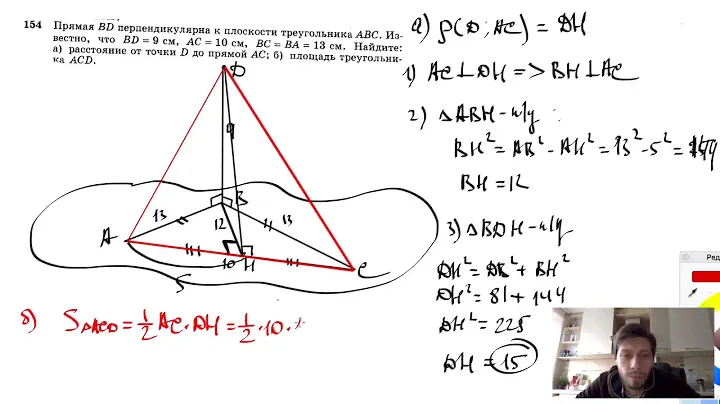 154 Прямая BD перпендикулярна к плоскости треугольника ABC. Из-
вестно, что BD = 9 см, AC = 10 см, BC = BA = 13 см. Найдите:
а) расстояние от точки D до прямой AC; б) площадь треугольни-
ка ACD.
a) ρ(D; AC) = DH
1) AC ⊥ DH => BH ⊥ AC
2) △ABH - п/у :
BH² = AB² - AH² = 13² - 5² =
BH = 12
3) △BDH - п/у
DH² = DB² + BH²
DH² = 81 + 144
DH² = 225
DH = 15
D
9
B
13
12
13
A
10
H
C
5
б) S△ACD = 1/2 AC · DH = 1/2 · 10 ·
Ред